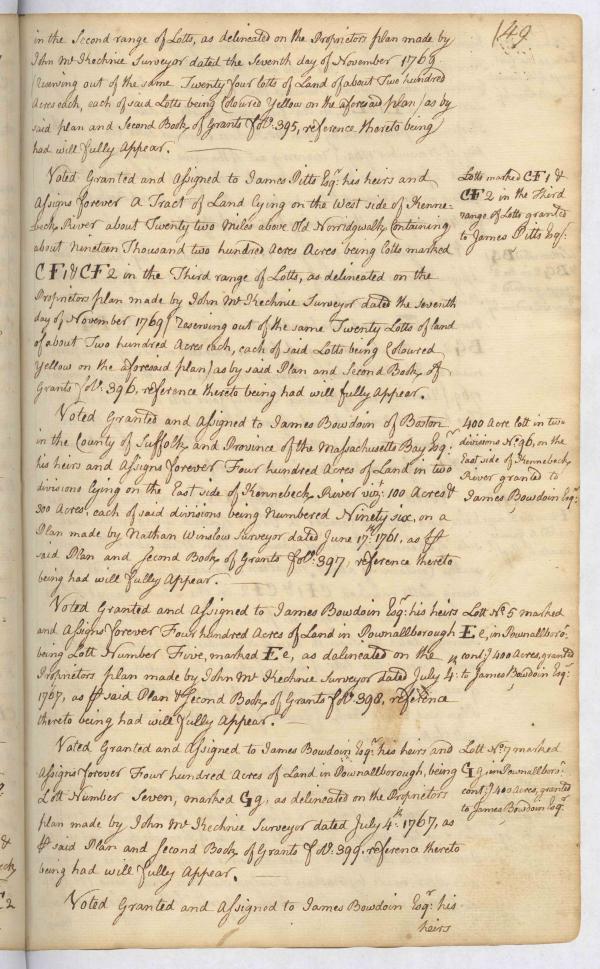 149
in the Second range of Lotts, as delineated on the Proprietors plan made by
John McKechnie Surveyor dated the Seventh day of November 1769
(reserving out of the same Twenty four lotts of Land of about Two hundred
Acres each, each of said Lotts being Coloured Yellow on the aforesaid plan) as by
said plan and Second Book of Grants fol: 395, reference thereto being
had will fully Appear.
Voted Granted and Assigned to James Pitts Esqr. his heirs and
Assigns forever A Tract of Land lying on the West side of Kenne-
beck River about Twenty two Miles above Old Norridgwalk Containing
about Nineteen Thousand two hundred Acres Acres being lotts marked
CF1 & CF2 in the Third range of Lotts, as delineated on the
Proprietors plan made by John McKechnie Surveyor dated the seventh
day of November 1769 (reserving out of the same Twenty Lotts of land
of about Two hundred Acres each, each of said Lotts being Coloured
Yellow on the aforesaid plan) as by said Plan and Second Book of
Grants fol: 396, reference thereto being had will fully Appear.
Lotts marked CF1 &
CF2 in the Third
range of Lotts granted
to James Pitts Esqr.
Voted Granted and Assigned to James Bowdoin of Boston
in the County of Suffolk and Province of the Massachusetts Bay Esqr.
his heirs and Assigns forever Four hundred Acres of Land in two
divisions lying on the East side of Kennebeck River vizt. 100 Acres &
300 Acres, each of said divisions being Numbered Ninety six, on a
Plan made by Nathan Winslow Surveyor dated June 17th. 1761, as
said Plan and Second Book of Grants fol: 397, reference thereto
being had will fully Appear.
400 Acre lott in two
divisions No. 96, on the
East side of Kennebeck
River granted to
James Bowdoin Esqr.
Voted Granted and Assigned to James Bowdoin Esqr. his heirs
and Assigns forever Four hundred Acres of Land in Pownallborough
being Lott Number Five, marked Ee, as dalineated on the
Proprietors plan made by John McKechnie Surveyor dated July 4th.
1767, as said Plan & Second Book of Grants fol: 398, reference
thereto being had will fully Appear.
Lott No. 5 marked
Ee, in Pownallboro:
cont: 400 Acres, granted
to James Bowdoin Esqr.
Voted Granted and Assigned to James Bowdoin Esqr. his heirs and
Assigns forever Four hundred Acres of Land in Pownallborough, being
Lott Number Seven, marked Gg, as delineated on the Proprietors
plan made by John McKechnie Surveyor dated July 4th. 1767, as
said Plan and Second Book of Grants fol: 399. reference thereto
being had will fully Appear.
Lott No. 7 marked
Gg, in Pownallboro:
cont: 400 Acres, granted
to James Bowdoin Esqr.
Voted Granted and Assigned to James Bowdoin Esqr. his
heirs